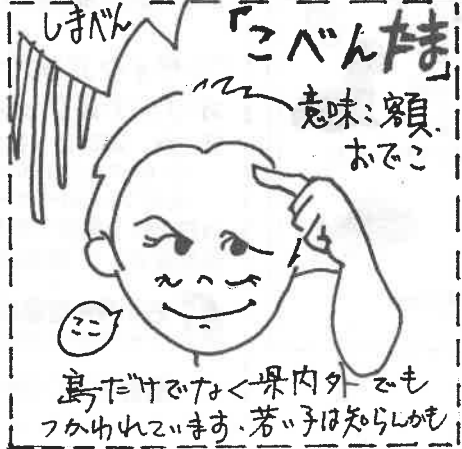 しまべん
「こべんたま」
意味：額、
おでこ
ここ
島だけでなく県内外でも
つかわれています。若い子は知らんかも